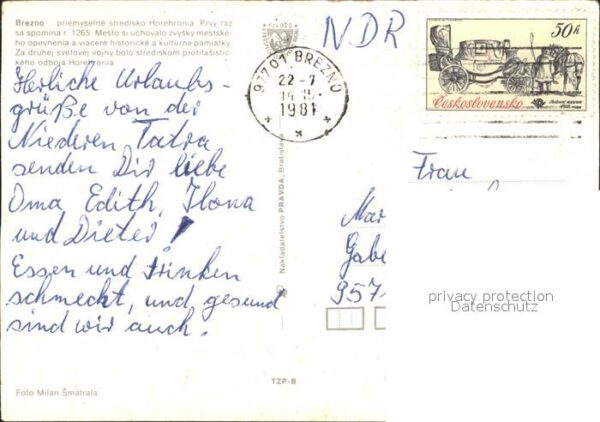 Brezno priemyselné stredisko Horehronia. Prvý raz
sa spomína r. 1265. Mesto si uchovalo zvyšky mestské-
ho opevnenia a viaceré historické a kultúrne pamiatky.
Za druhej svetovej vojny bolo strediskom protifašistic-
kého odboja Horehronia
Herliche Urlaubs-
grüße von der
Niederen Tatra
senden Dir liebe
Oma Edith, Ilona
und Dieter!
Essen und Trinken
schmeckt, und gesund
sind wir auch.
Foto Milan Šmátrala
Nakladateľstvo PRAVDA, Bratislava
TZP-B
NDR
977 01 BREZNO
22 -7
1981
50h
Československo
Frau
Mar
Gabe
957
privacy protection
Datenschutz